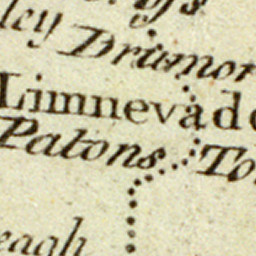 ley Drumor
Limnevade
Patons To
eagh